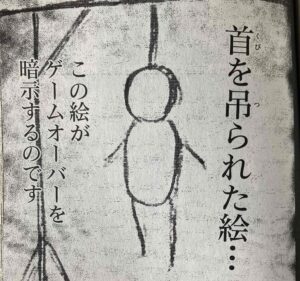 首を吊られた絵…
くび
つ
この絵が
ゲームオーバーを
暗示するのです